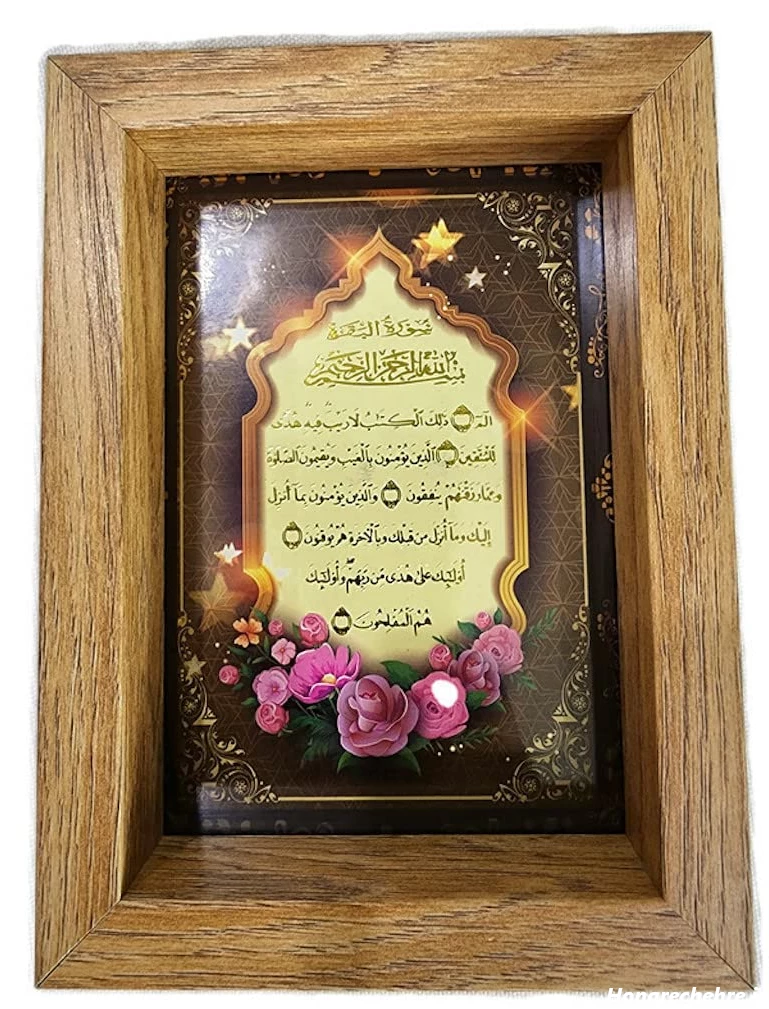 سُورَةُ البَقَرَة
بِسْمِ اللَّهِ الرَّحْمَٰنِ الرَّحِيمِ
الٓمٓ ذَٰلِكَ الْكِتَٰبُ لَا رَيْبَ فِيهِ هُدًى
لِّلْمُتَّقِينَ الَّذِينَ يُؤْمِنُونَ بِالْغَيْبِ وَيُقِيمُونَ الصَّلَوٰةَ
وَمِمَّا رَزَقْنَٰهُمْ يُنفِقُونَ وَالَّذِينَ يُؤْمِنُونَ بِمَآ أُنزِلَ
إِلَيْكَ وَمَآ أُنزِلَ مِن قَبْلِكَ وَبِالْآخِرَةِ هُمْ يُوقِنُونَ
أُو۟لَٰٓئِكَ عَلَىٰ هُدًى مِّن رَّبِّهِمْ وَأُو۟لَٰٓئِكَ
هُمُ الْمُفْلِحُونَ
Honarechehre